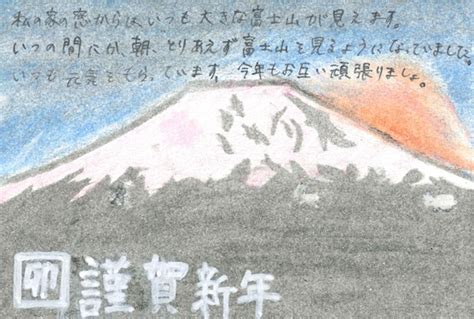 私の家の窓からは、いつも大きな富士山が見えます。
いつの間にか、朝、とりあえず富士山を見るようになっていました。
いつも元気をもらっています。今年もお互い頑張りましょ。
卯 謹賀新年